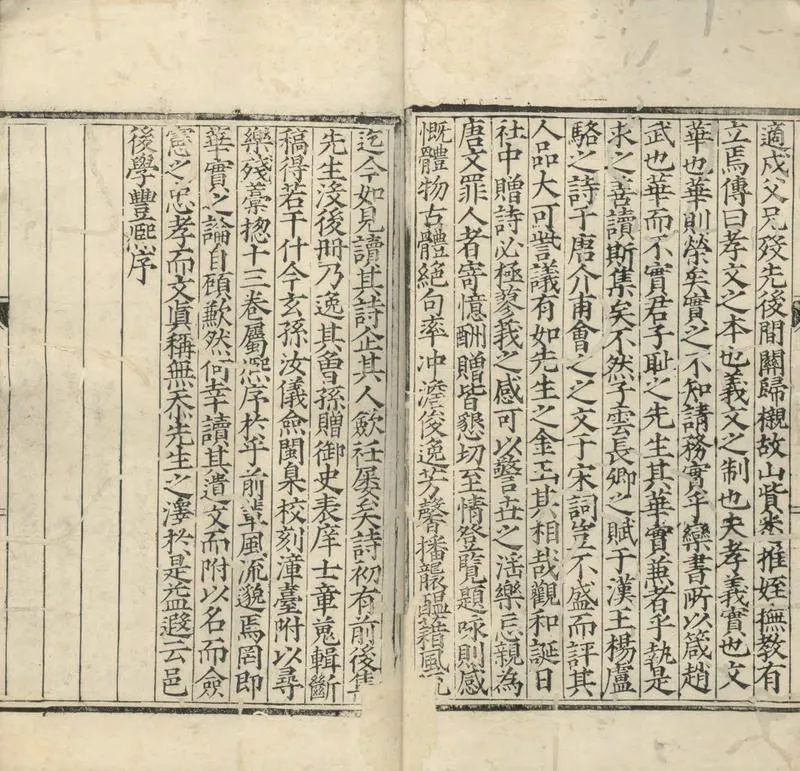 適戍父兄歿先後間關歸櫬故山貲米推姪撫教有
立焉傳曰孝文之本也義文之制也夫孝義實也文
華也華則榮矣實之不知請務實乎欒書所以箴趙
武也華而不實君子恥之先生其華實兼者乎執是
求之善讀斯集矣不然子雲長卿之賦于漢王楊盧
駱之詩于唐介甫會之之文于宋詞豈不盛而評其
人品大可訾議有如先生之金玉其相哉觀和誕日
社中贈詩必極蓼莪之感可以警世之湛樂忘親為
唐文罪人者寄憶酬贈皆懇切至情登覽題咏則感
慨體物古體絕句率冲澹俊逸芳馨播襲醖藉風流
迄今如見讀其詩企其人歛衽屢矣詩初有前後集
先生沒後冊乃逸其曾孫贈御史表庠士章蒐輯斷
稿得若干什今玄孫汝儀僉閩臬校刻漳臺附以尋
樂殘藁揔十三卷屬熈序於乎前輩風流邈焉罔即
華實之論自顧歉然何幸讀其遺文而附以名而僉
憲之忠孝而文眞稱無忝先生之澤於是益遐云邑
後學豐熈序